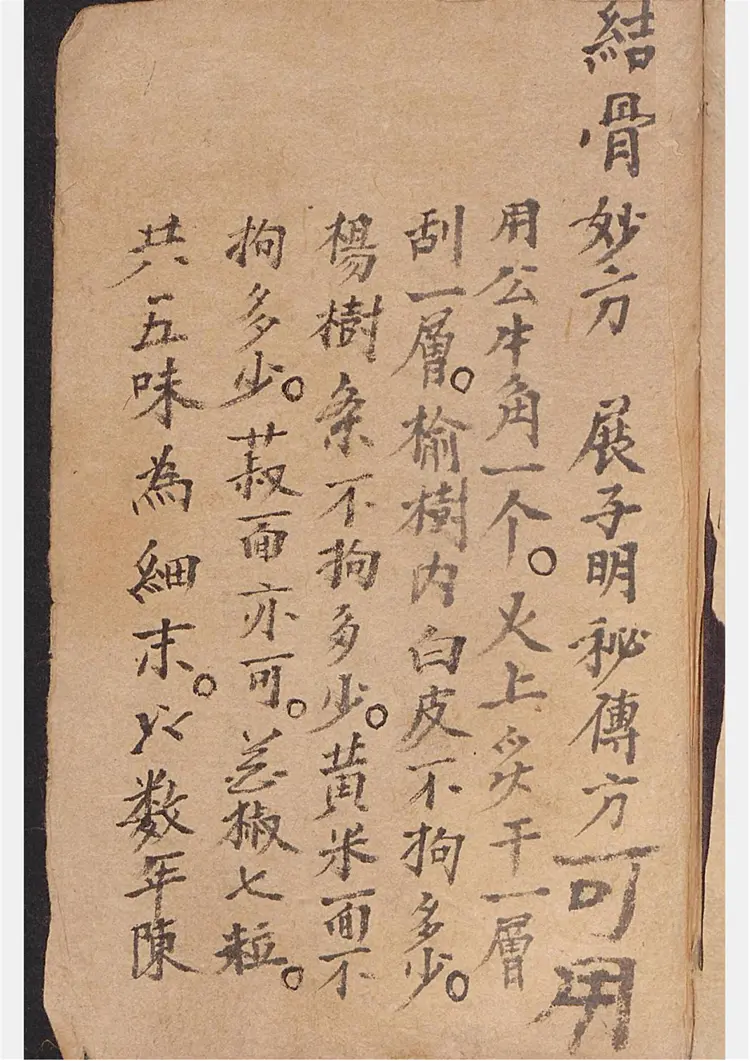 結骨妙方 展子明秘傳方可用
用公牛角一个。火上炙干一層
刮一層。榆樹内白皮不拘多少。
楊樹条不拘多少。黄米面不
拘多少。菽面亦可。花椒七粒。
共五味為細末。以数年陳